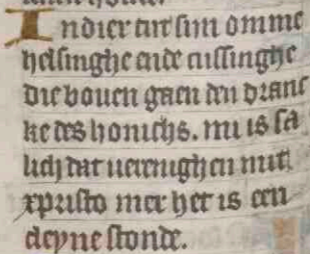 In dier tijt sijn omme
helsinghe ende cussinghe
die bouen gaen den dranc
ke des honichs. mi is sa
lich dat uerenighen mit
xpristo mer het is een
cleyne stonde.